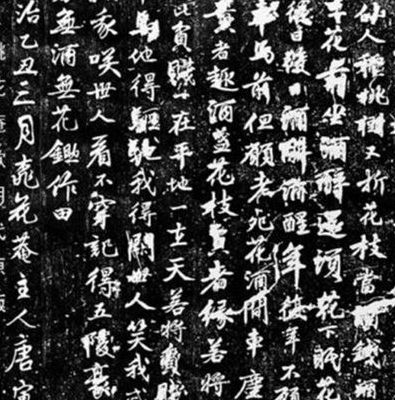 仙人種桃樹又折花枝當酒錢酒
在花前坐酒醉還須花下眠花
日復日酒醉酒醒年復年不願
車馬前但願老死花酒間車塵
貴者趣酒盞花枝貧者緣若將
比貧賤一在平地一在天若將貧賤
車馬他得驅馳我得閑世人笑我忒
我咲世人看不穿記得五陵豪
無酒無花鋤作田
治乙丑三月桃花菴主人唐寅